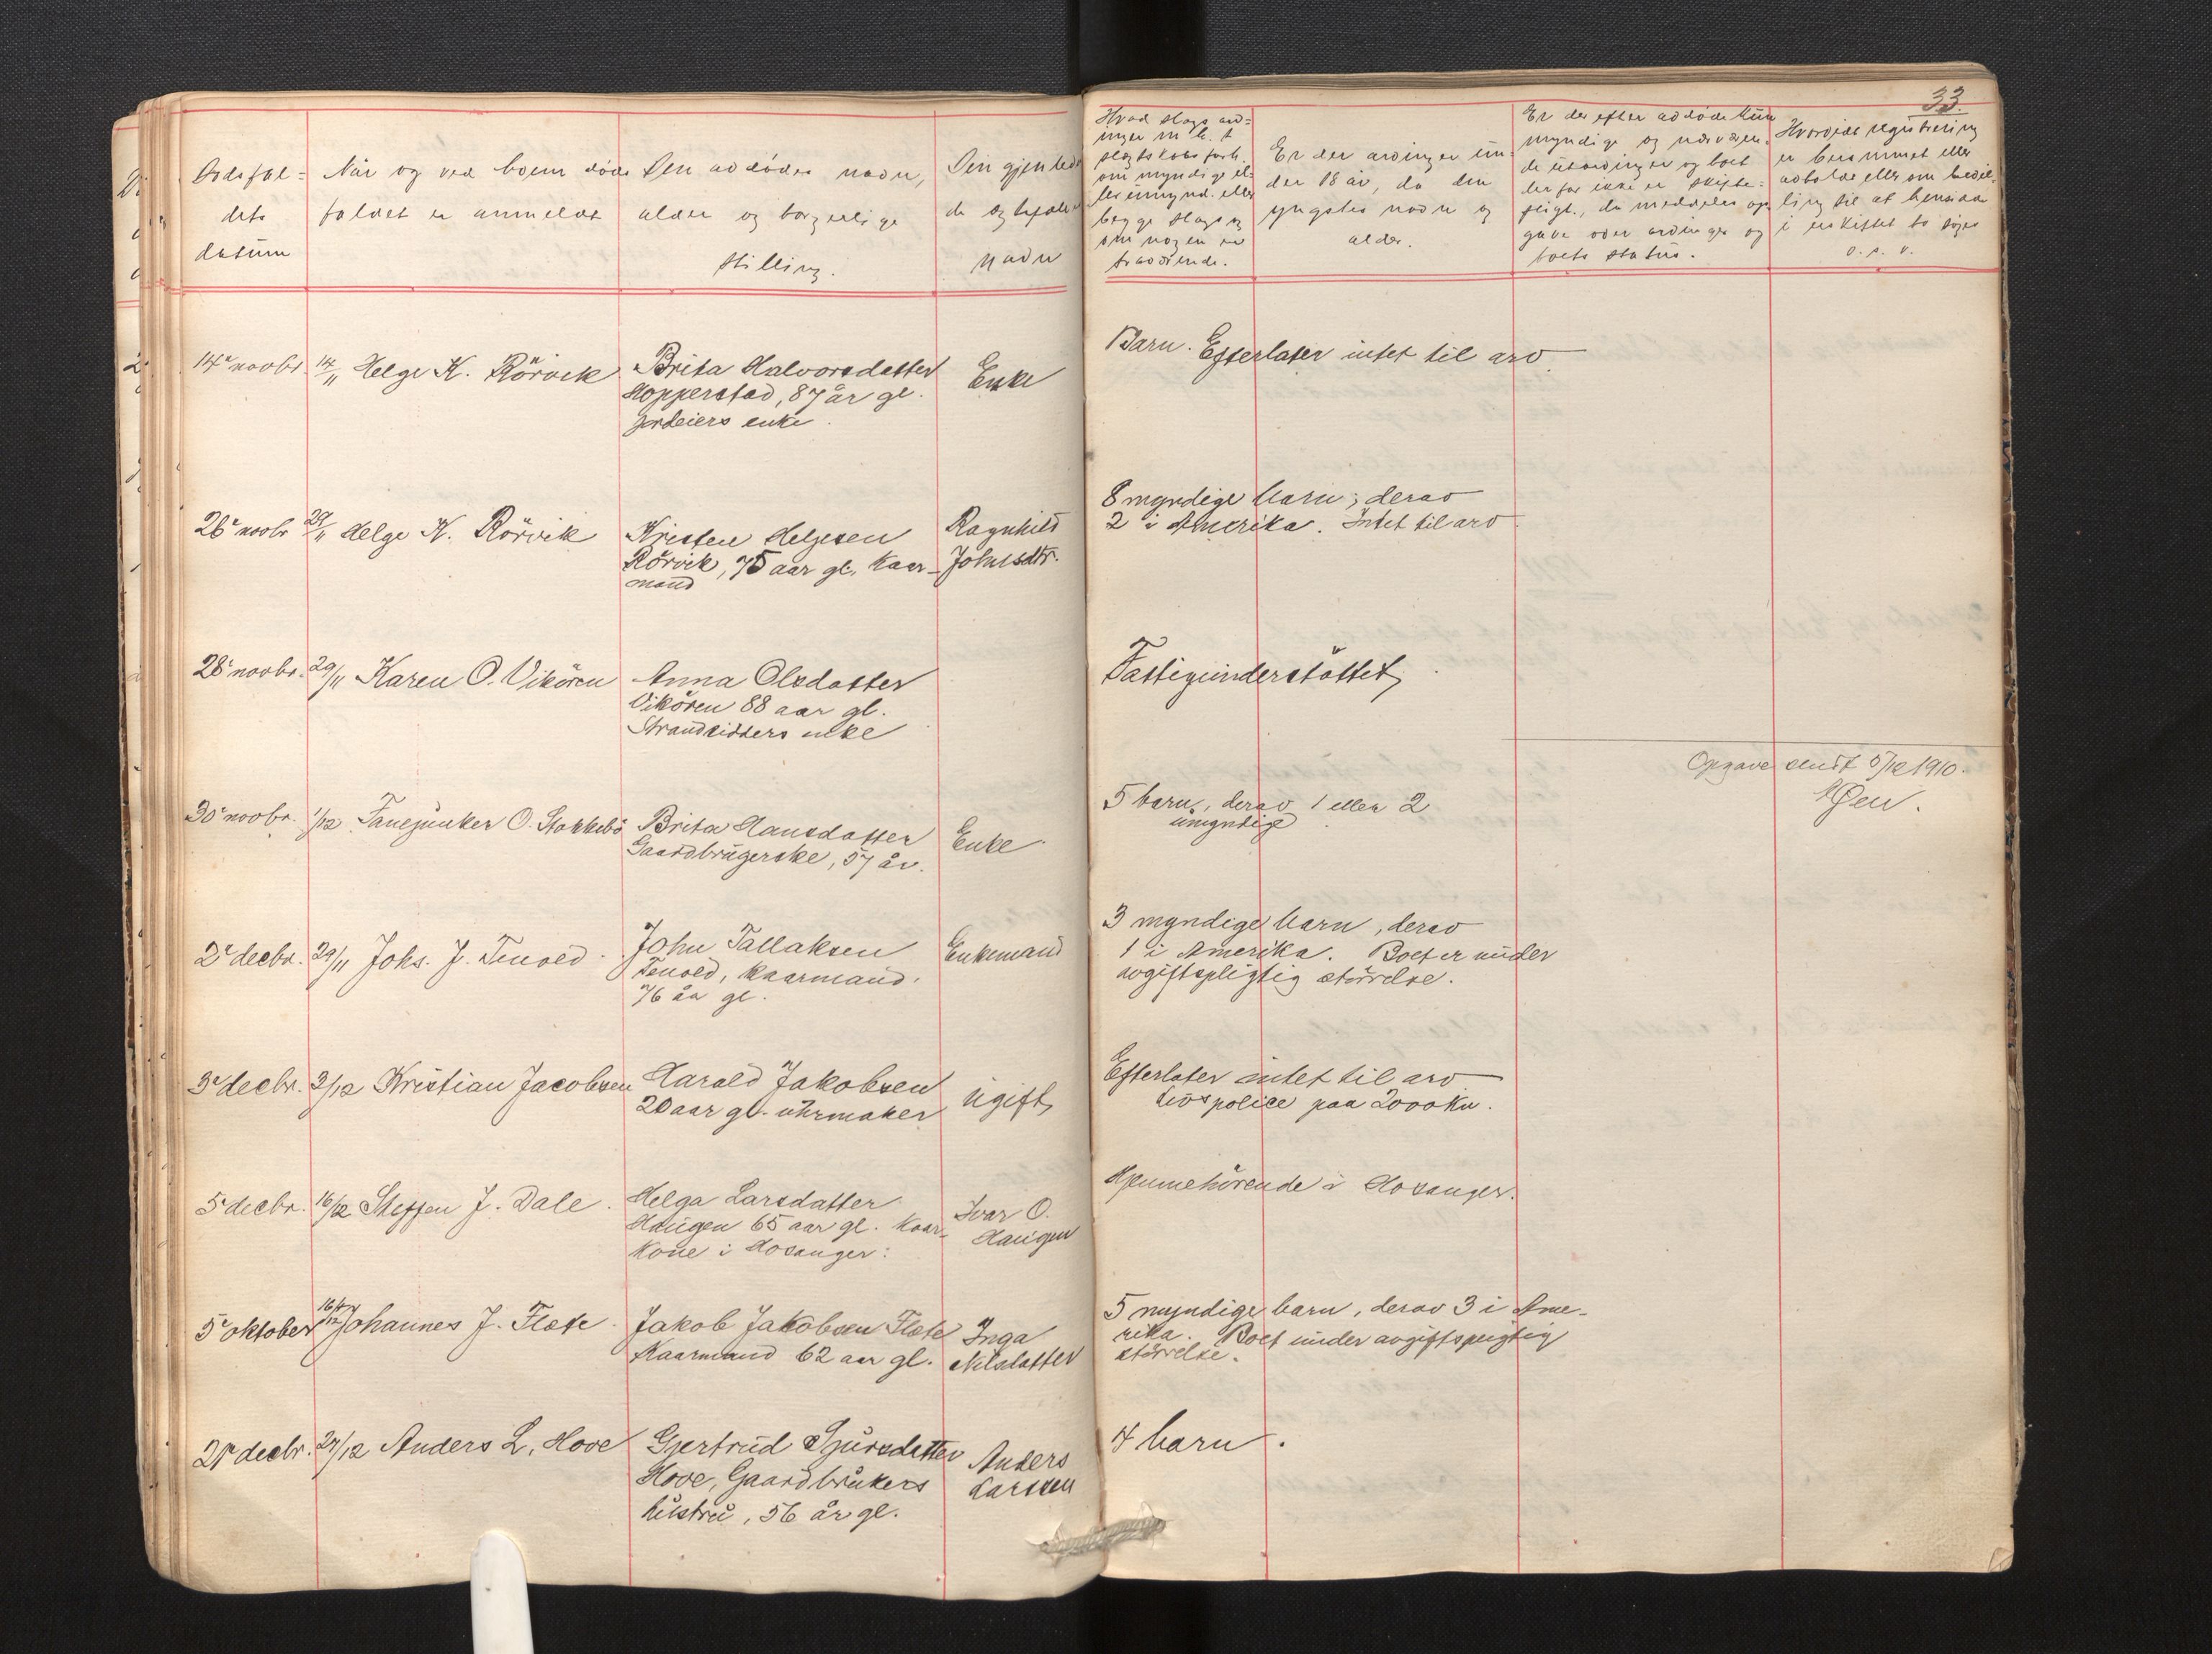 33.
Dødsfal-
dets
datum
Når og ved hvem døds
faldet er anmeldt
Den avdødes navn,
alder og borgerlige
stilling.
Den gjenlevⁿ
de egtefæl
navn
Hvad slags arv-
inger m. h. t
slegtskabsforh.
om myndige el-
ler umynd. eller
begge slags og
om nogen er
fraværende.
Er der arvinger un-
der 18 år, da den
yngstes navn og
alder.
Er der efter avdøde kun
myndige og nærværen-
de utarvinger og boet
derfor ikke er skifte-
pligt., da meddeles op-
gave over arvinger og
boets status.
Hvorvidt registrering
er berammet eller
avholdt eller om bevil-
ling til at hensidde
i uskiftet bo søges
o. s. v.
14 novbr 14/11 Helge K. Rörvik
Brita Halvorsdatter
Hopperstad, 87 år gl.
jordeiers enke.
Enke
Barn. Efterlater intet til arv.
26 novbr 29/11 Helge K. Rörvik
Kristen Helgesen
Rörvik, 75 aar gl, kaar-
mand
Ragnhild
Johnsdtr.
8 myndige barn; derav
2 i Amerika. Intet til arv.
28 novbr. 29/11 Karen O. Vikören
Anna Olsdatter
Vikören 88 aar gl.
Strandsidders enke
Fattigunderstöttet
Opgave sendt 5/12 1910.
30 novbr. 1/12 Fanejunker O. Stokkebö
Brita Hansdatter
Gaardbrugerske, 57 år.
Enke
5 barn, derav 1 eller 2
umyndige
2 decbr. 29/11 Johs. J. Tenold.
John Tallaksen
Tenold, kaarmand.
76 år gl.
Enkemand
3 myndige barn, derav
1 i Amerika. Boet er under
avgiftspligtig störrelse.
3 decbr. 3/12 Kristian Jacobsen
Harald Jakobsen
20 aar gl. uhrmaker
ugift
Efterlater intet til arv
Livspolice paa 2000 Kr.
5 decbr. 16/12 Steffen J. Dale.
Helga Larsdatter
Haugen 65 aar gl. kaar-
kone i Hosanger.
Ivar O.
Haugen
Hjemmehörende i Hosanger.
5 oktober 16/12 Johannes J. Flete.
Jakob Jakobsen Flete
Kaarmand 62 aar gl.
Inga
Nilsdatter
5 myndige barn, derav 3 i Ame-
rika. Boet under avgiftspligtig
störrelse.
21 decbr. 27/12 Anders L. Hove
Gjertrud Sjursdatter
Hove, Gaardbrukers
hustru, 56 år gl.
Anders
Larssen
4 barn.